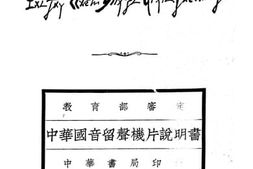 教育部審定
中華國音留聲機片說明書
中華書局印